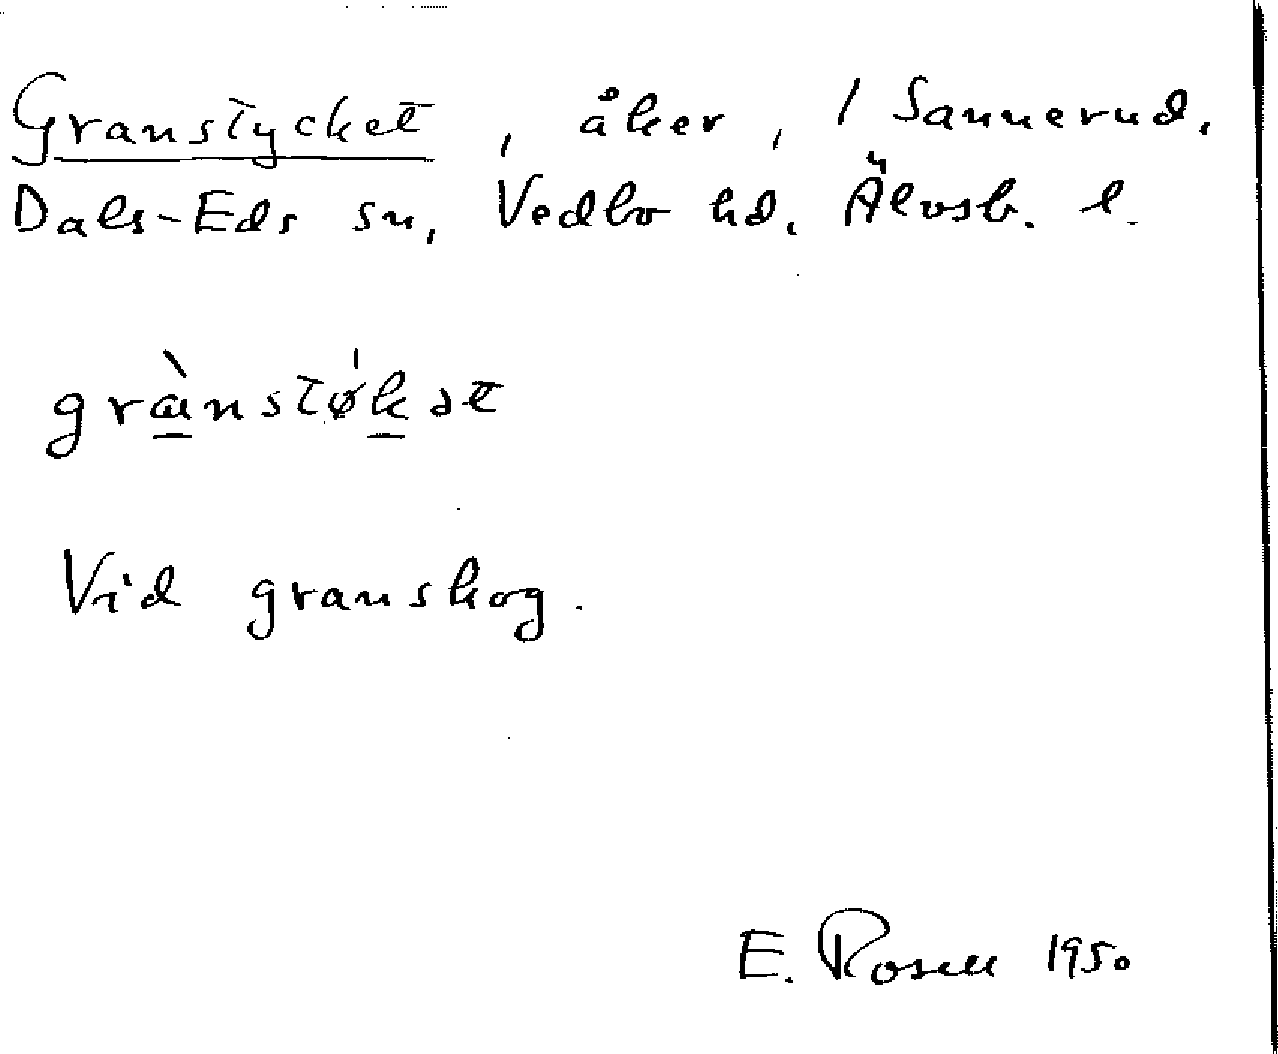 Granstycket, åker, 1 Sannerud.
Dals-Eds sn, Vedbo hd. Älvsb. l.
grànstø̀kət
Vid granskog.
E. Rosell 1950